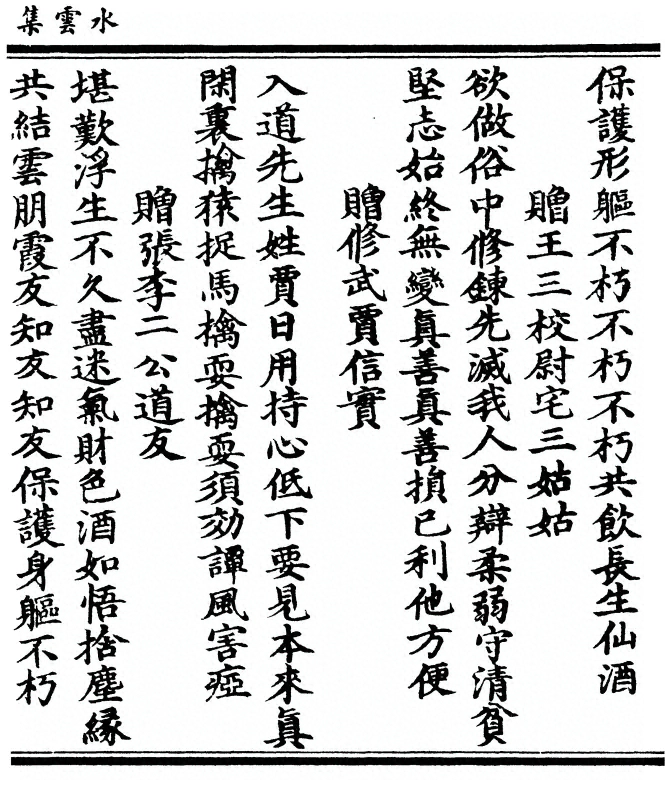 水雲集
保護形軀不朽不朽不朽共飲長生仙酒
贈王三校尉宅三姑姑
欲做俗中修鍊先滅我人分辯柔弱守清貧
堅志始終無變眞善眞善損已利他方便
贈修武賈信實
入道先生姓賈日用持心低下要見本來眞
閑裏擒猿捉馬擒耍擒耍須効譚風害瘂
贈張李二公道友
堪歎浮生不久盡迷氣財色酒如悟捨塵緣
共結雲朋霞友知友知友保護身軀不朽